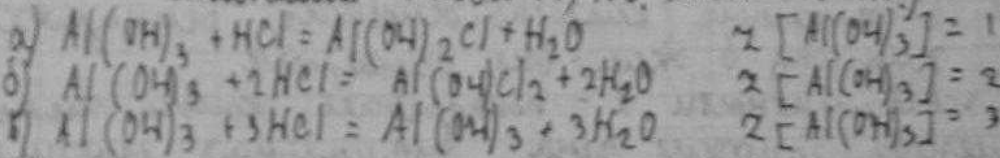 а) Al(OH)₃ + HCl = Al(OH)₂Cl + H₂O z [Al(OH)₃] = 1
б) Al(OH)₃ + 2HCl = Al(OH)Cl₂ + 2H₂O z [Al(OH)₃] = 2
в) Al(OH)₃ + 3HCl = Al(OH)₃ + 3H₂O z [Al(OH)₃] = 3